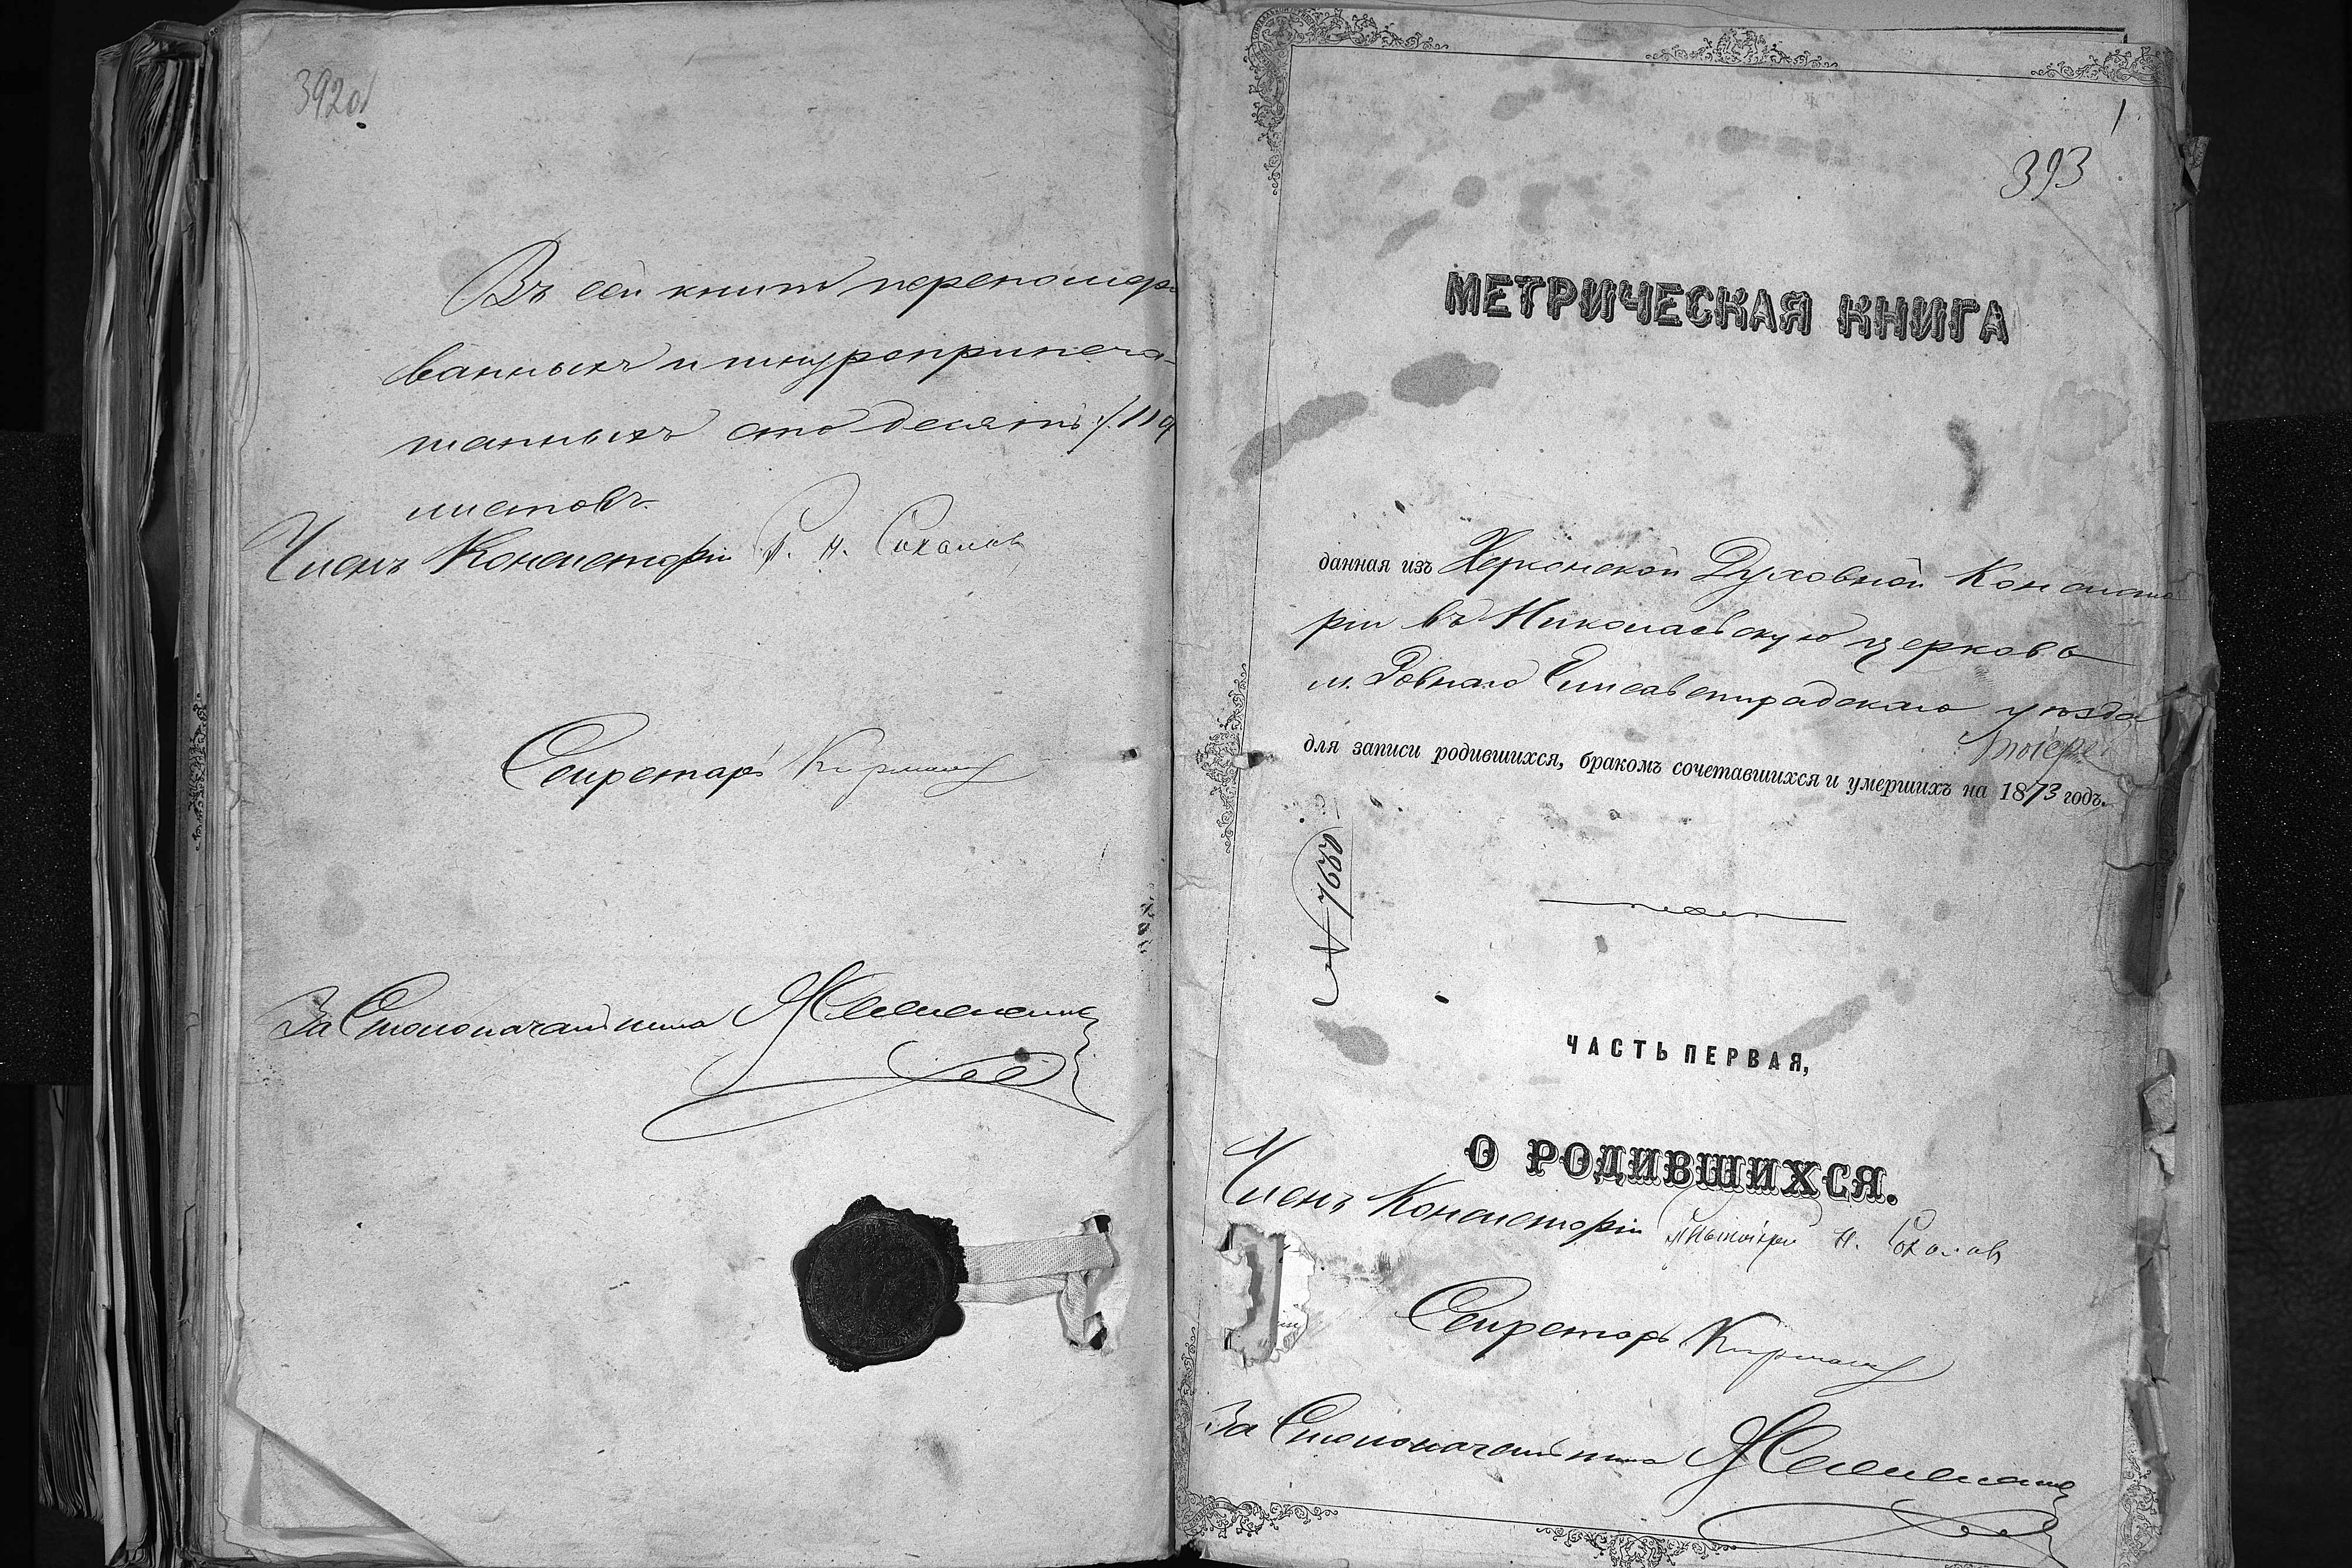 392об
Въ сей книге перенумеро
ванныхъ и шнуроприпеча-
танныхъ сто десять /110
листовъ.
Членъ Консисторіи П. Н. Соколовъ
Секретарь
За Столоначальника
1
393
МЕТРИЧЕСКАЯ КНИГА
данная изъ Херсонской Духовной Консисто
ріи въ Николаевскую церковь
м. Ровнаго Елисаветградскаго уѣзда
для записи родившихся, бракомъ сочетавшихся и умершихъ на 1873 годъ.
ЧАСТЬ ПЕРВАЯ,
О РОДИВШИХСЯ.
Членъ Консисторіи Н. Соколовъ
Секретарь
За Столоначальника